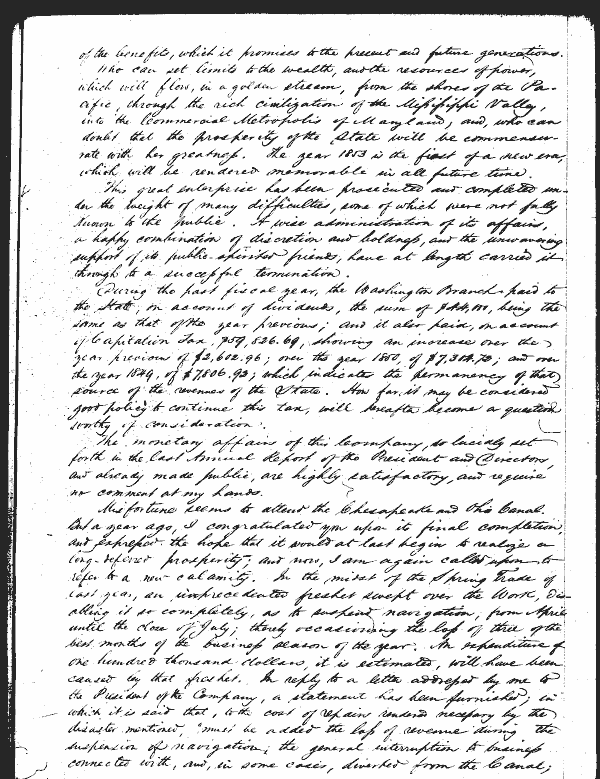 of the benefits, which it promises to the present and future generations.
Who can set limits to the wealth, and the resources of power,
which will flow, in a golden stream, from the shores of the Pa-
cific, through the rich civilization of the Mississippi Valley,
into the Commercial Metropolis of Maryland; and, who can
doubt that the prosperity of the State will be commensu-
rate with her greatness. The year 1853 is the first of a new era,
which will be rendered memorable in all future time.
This great enterprise has been prosecuted and completed un-
der the weight of many difficulties, some of which were not fully
known to the public. A wise administration of its affairs,
a happy combination of discretion and boldness, and the unwavering
support of its public-spirited friends, have at length carried it
through to a successful termination.
During the past fiscal year, the Washington Branch paid to
the State, on account of dividends, the sum of being the
same as that of the year previous; and it also paid, on account
of Capitation Tax, showing an increase over the
year previous of $2,602.96; over the year 1850, of and over
the year 1849, of $7,806.92; which indicates the permanency of that
source of the revenues of the State. How far it may be considered
good policy to continue this tax, will hereafter become a question
worthy of consideration.
The monetary affairs of this Company, so lucidly set
forth in the last Annual Report of the President and Directors,
and already made public, are highly satisfactory, and require
no comment at my hands.
Misfortune seems to attend the Chesapeake and Ohio Canal.
But a year ago, I congratulated you upon its final completion,
and expressed the hope that it would at last begin to realize a
long-deferred prosperity; and now, I am again called upon to
refer to a new calamity. In the midst of the Spring Trade of
last year, an unprecedented freshet swept over the Work, dis-
abling it so completely, as to suspend navigation, from April
until the close of July; thereby occasioning the loss of three of the
best months of the business season of the year. An expenditure of
one hundred thousand dollars, it is estimated, will have been
caused by that freshet. In reply to a letter addressed by me to
the President of the Company, a statement has been furnished; in
which it is said that, to the cost of repairs rendered necessary by the
disaster mentioned, "must be added the loss of revenue during the
suspension of navigation; the general interruption to business
connected with, and, in some cases, diverted from the Canal;